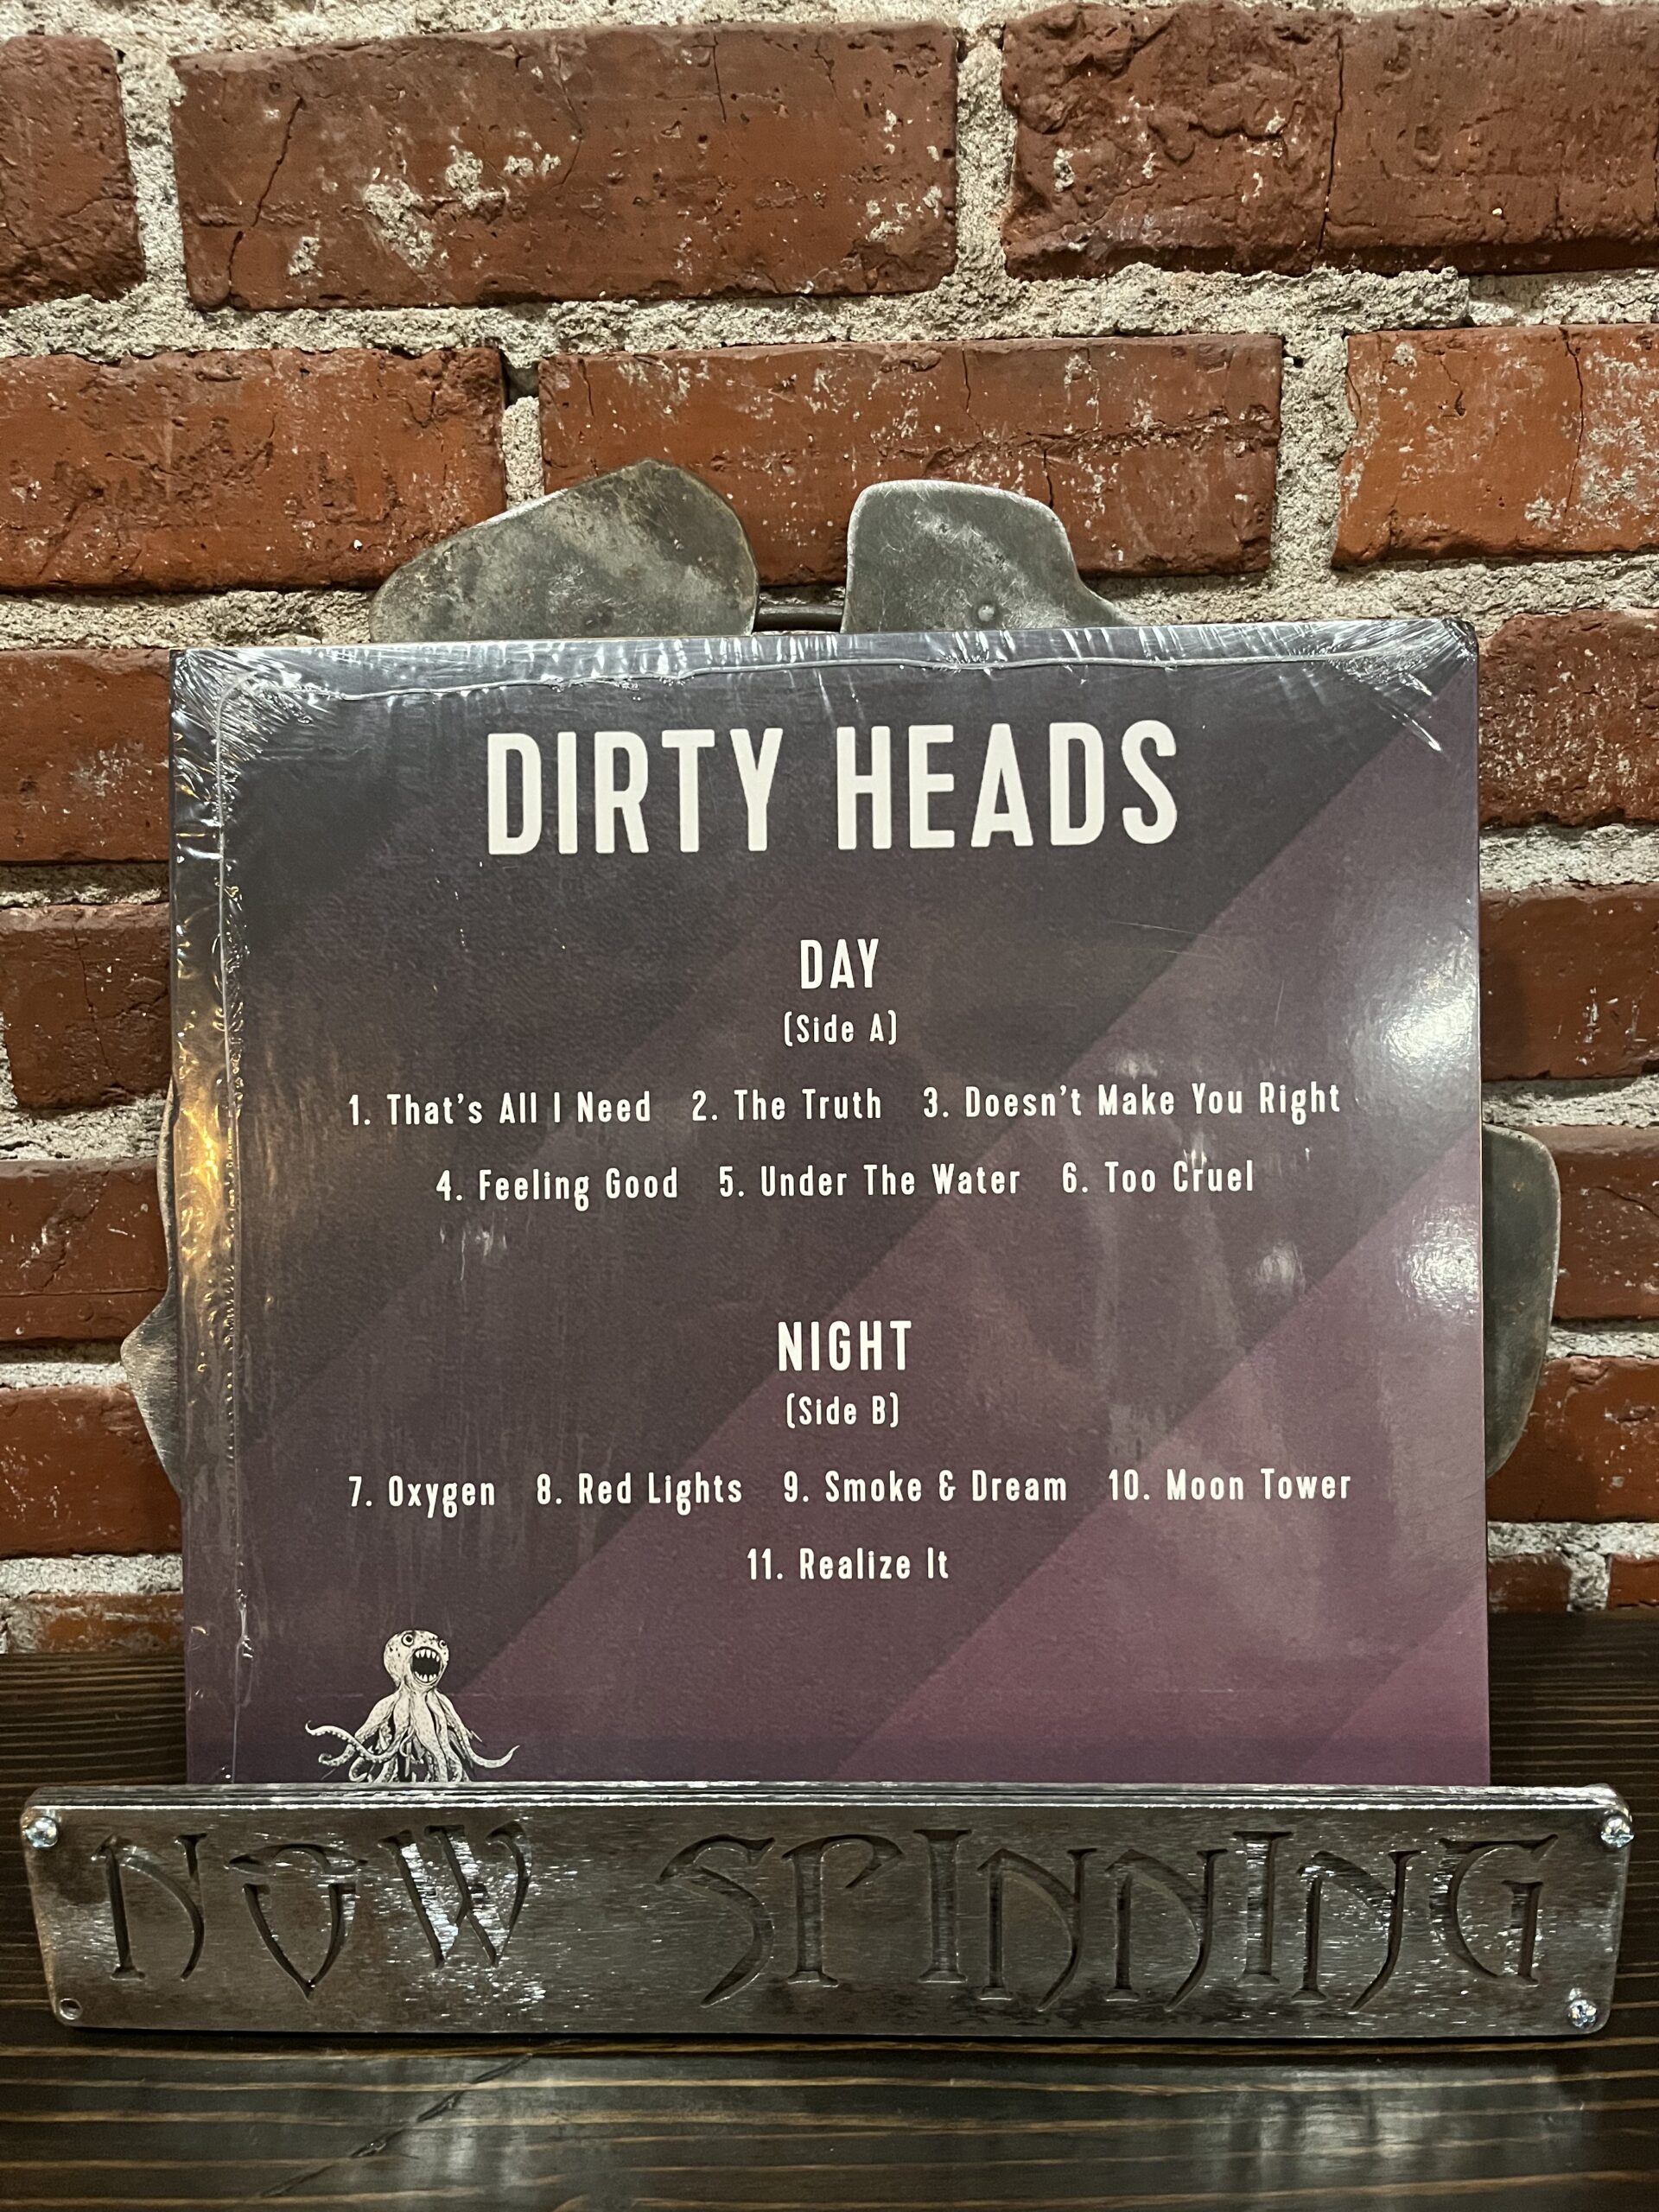 DIRTY HEADS
DAY
(Side A)
1. That's All I Need 2. The Truth 3. Doesn't Make You Right
4. Feeling Good 5. Under The Water 6. Too Cruel
NIGHT
(Side B)
7. Oxygen 8. Red Lights 9. Smoke & Dream 10. Moon Tower
11. Realize It
NOW SPINNING